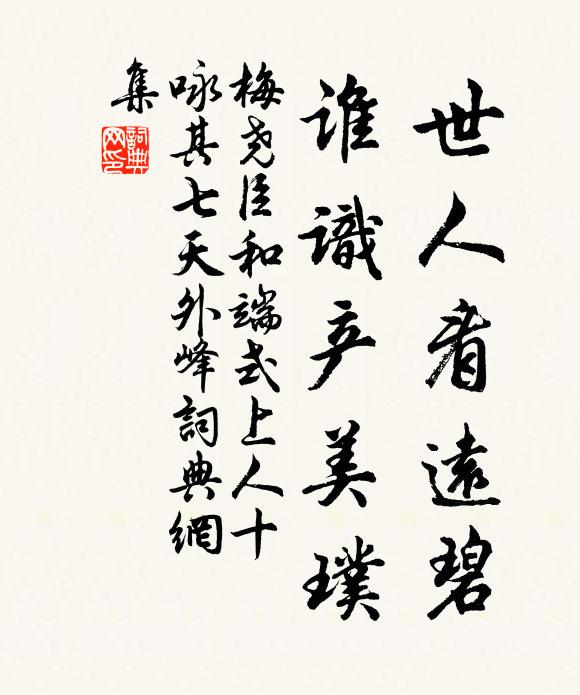 世人看遠碧
誰識产美璞
梅尧臣和端式上人十
咏其七天外峰詞典網
集
詞典网印